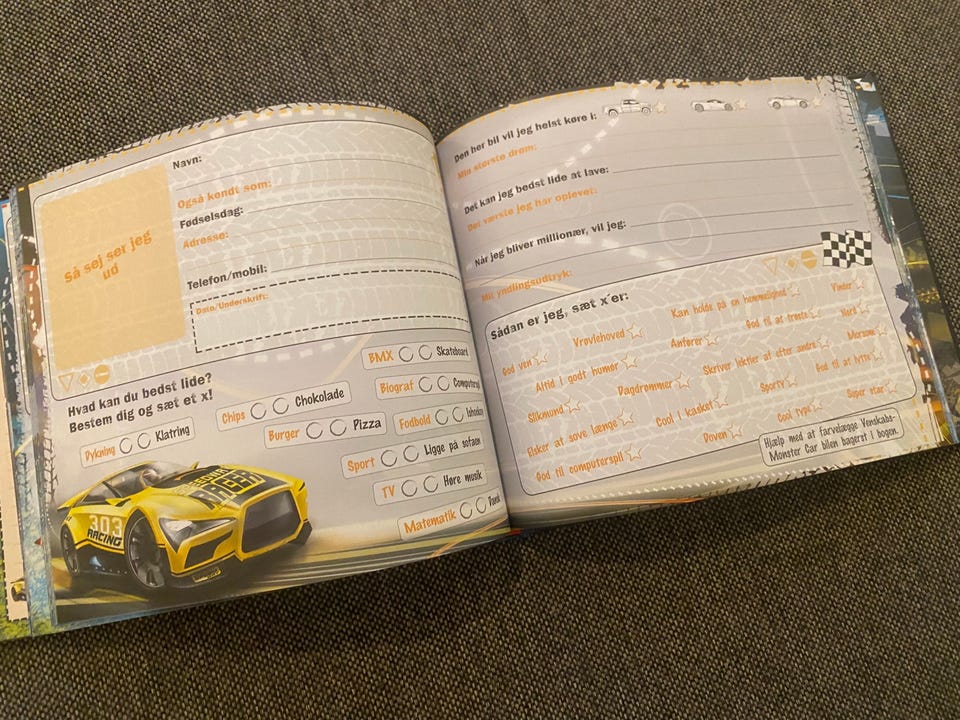 Så sej ser jeg
ud
Navn:
Også kendt som:
Fødselsdag:
Adresse:
Telefon/mobil:
Dato/Underskrift:
Hvad kan du bedst lide?
Bestem dig og sæt et x!
Dykning Klatring
Chips Chokolade
Burger Pizza
BMX Skateboard
Biograf Computerspil
Fodbold Ishockey
Sport Ligge på sofaen
TV Høre musik
Matematik Dansk
303
RACING
Den her bil vil jeg helst køre i:
Min største drøm:
Det kan jeg bedst lide at lave:
Det værste jeg har oplevet:
Når jeg bliver millionær, vil jeg:
Mit yndlingsudtryk:
Sådan er jeg, sæt x'er:
God ven Vrøvlehoved Kan holde på en hemmelighed Vinder
Altid i godt humør Anfører God til at trøste Nørd
Slikmund Dagdrømmer Skriver lektier af efter andre Morsom
Elsker at sove længe Cool i kasket Sporty God til at lytte
God til computerspil Doven Cool type Super star
Hjælp med at farvelægge Venskabs-
Monster Car bilen bagerst i bogen.